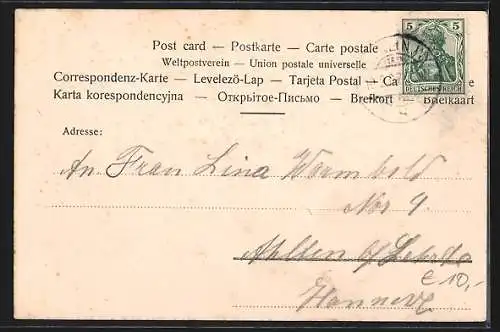 Post card — Postkarte — Carte postale
Weltpostverein — Union postale universelle
Correspondenz-Karte — Levelező-Lap — Tarjeta Postal — Ca
Karta korespondencyjna — Открытое-Письмо — Brefkort — Briefkaart
5 5
DEUTSCHES REICH
Adresse:
An Frau Lina Wormbold
No 9
Ahlten b/ Lehrte
€ 10,-
Hannover